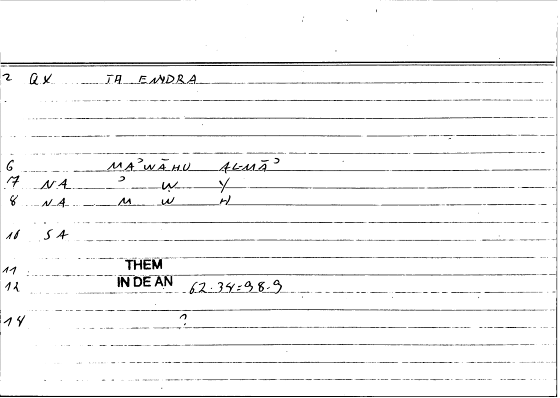 2 QX TA ENYDRA
6 MAʾWĀHU ALMĀʾ
7 NA ʾ W Y
8 NA M W H
10 SA
11 THEM
12 IN DE AN 62.34=98.9
14 ?